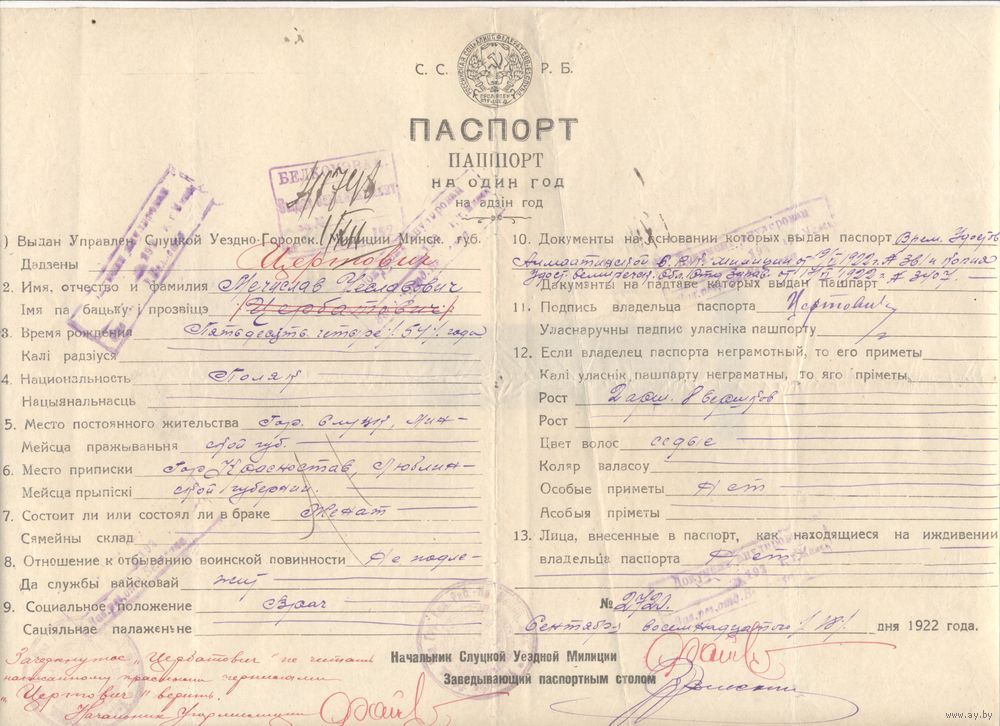 С. С. Р. Б.
ПАСПОРТ
ПАШПОРТ
НА ОДИН ГОД
на адзін год
БЕЛКОМЭВАК
1) Выдан Управлен. Слуцкой Уездно-Городск. Милиции Минск. губ.
Дадзены Цертович
2. Имя, отчество и фамилия Мечислав Чеславович
Імя па бацьку і прозвіщэ (Цербатович)
3. Время рождения Пятьдесять четыре /54/ года
Калі радзіуся
4. Национыльность Поляк
Нацыянальнасць
5. Место постоянного жительства Гор. Слуцк, Мин-
Мейсца пражываньня ской губ.
6. Место приписки Гор. Красностав, Люблин-
Мейсца прыпіскі ской губернии.
7. Состоит ли или состоял ли в браке Женат
Сямейны склад
8. Отношение к отбыванию воинской повинности Не подле-
Да службы вайсковай жит
9. Социальное положение Врач
Сацiяльнае палаженьне
10. Документы на основании которых выдан паспорт Врем. Удость
милиции от 1922 г. № 381 и копия
Документы на падтаве каторых выдан пашпарт от 1922 г. № 3407.
11. Подпись владельца паспорта Цертович
Уласнаручны падпис уласніка пашпорту
12. Если владелец паспорта неграмотный, то его приметы
Калі уласнік пашпарту неграматны, то яго прiметы
Рост 2 арш. 8 вершков
Рост
Цвет волос седые
Коляр валасоу
Особые приметы Нет
Асобыя пріметы
13. Лица, внесенные в паспорт, как находящиеся на иждивении
владельца паспорта Нет
№ 2722.
Сентября восемнадцатого /18/ дня 1922 года.
Начальник Слуцкой Уездной Милиции
Заведывающий паспортным столом
Зачеркнутое „Цербатович" не читать
написанному красными чернилами
„Цертович" верить.
Начальник Уездмилиции
www.ay.by